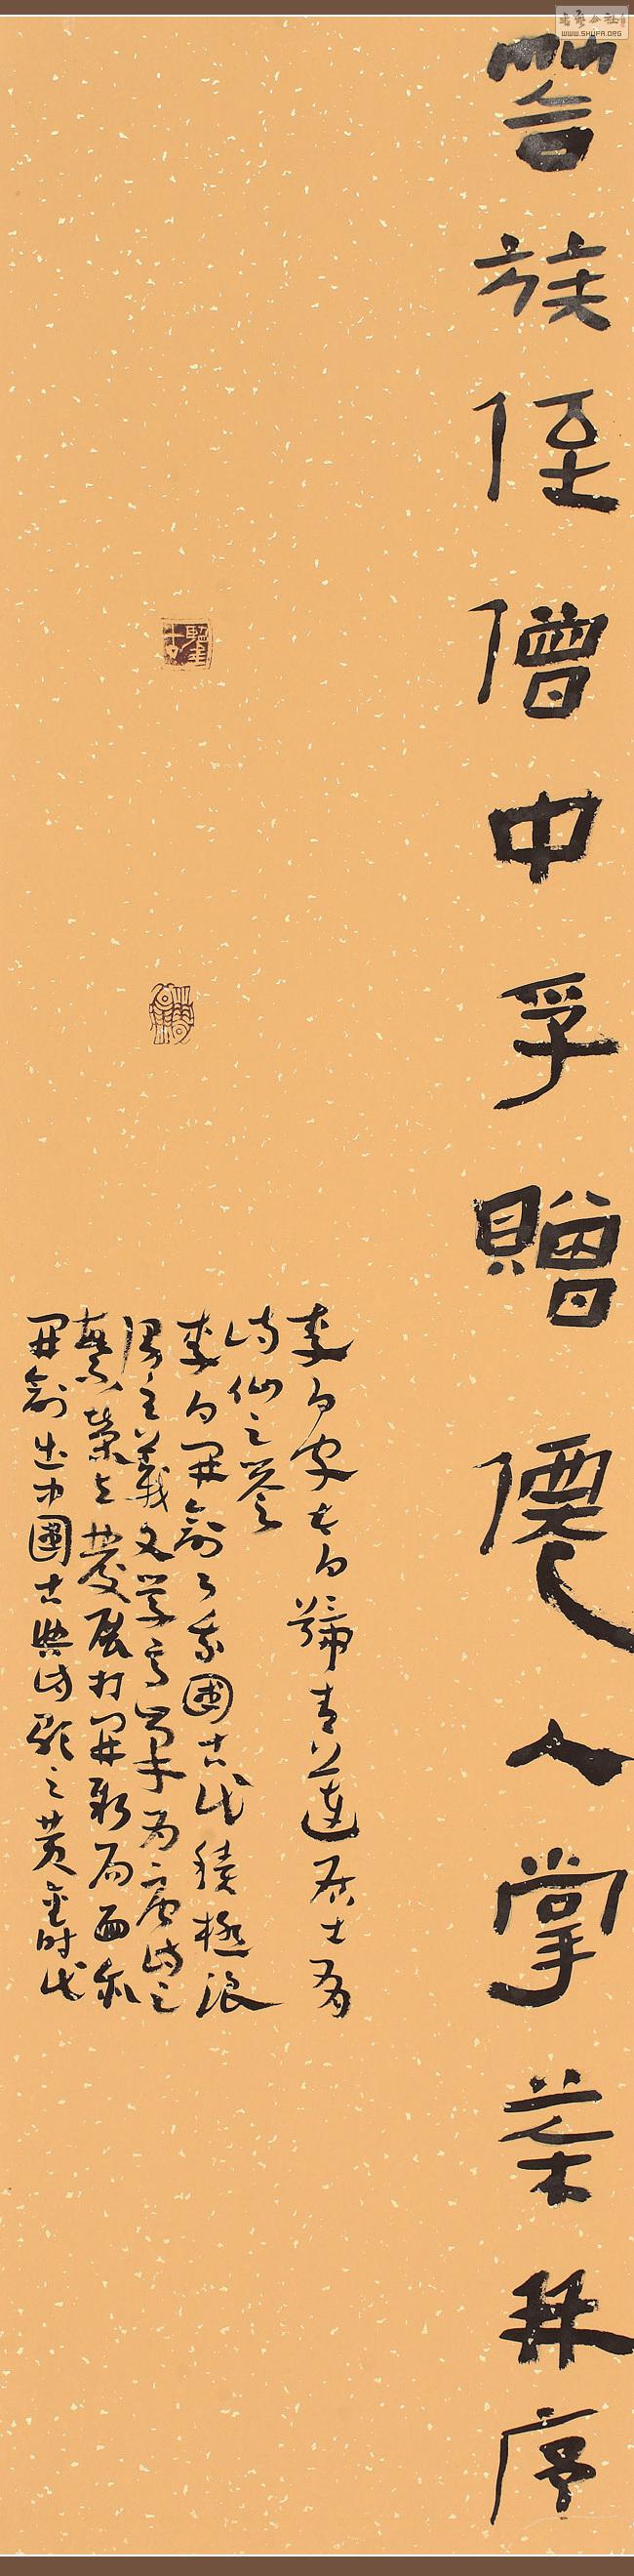 答族侄僧中孚贈僊人掌茶并序
李白字太白號青蓮居士有
詩仙之譽
李白開創了我國古代積極浪
漫主義文學高峰為唐詩之
繁榮與發展打開新局面
開創出中國古典詩歌之黃金時代
WWW.SHUFA.ORG